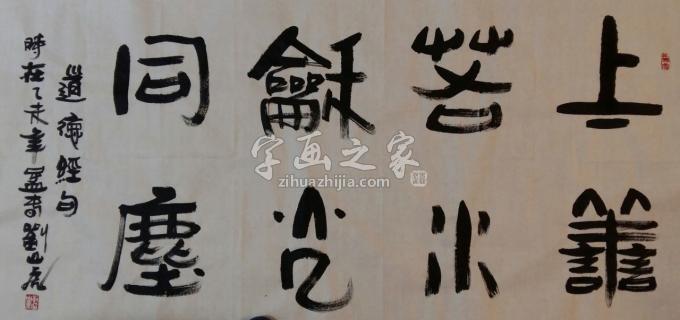 上善
若水
龢光
同塵
道德經句
時在乙未年孟春劉山虎
字画之家
zihuazhijia.com